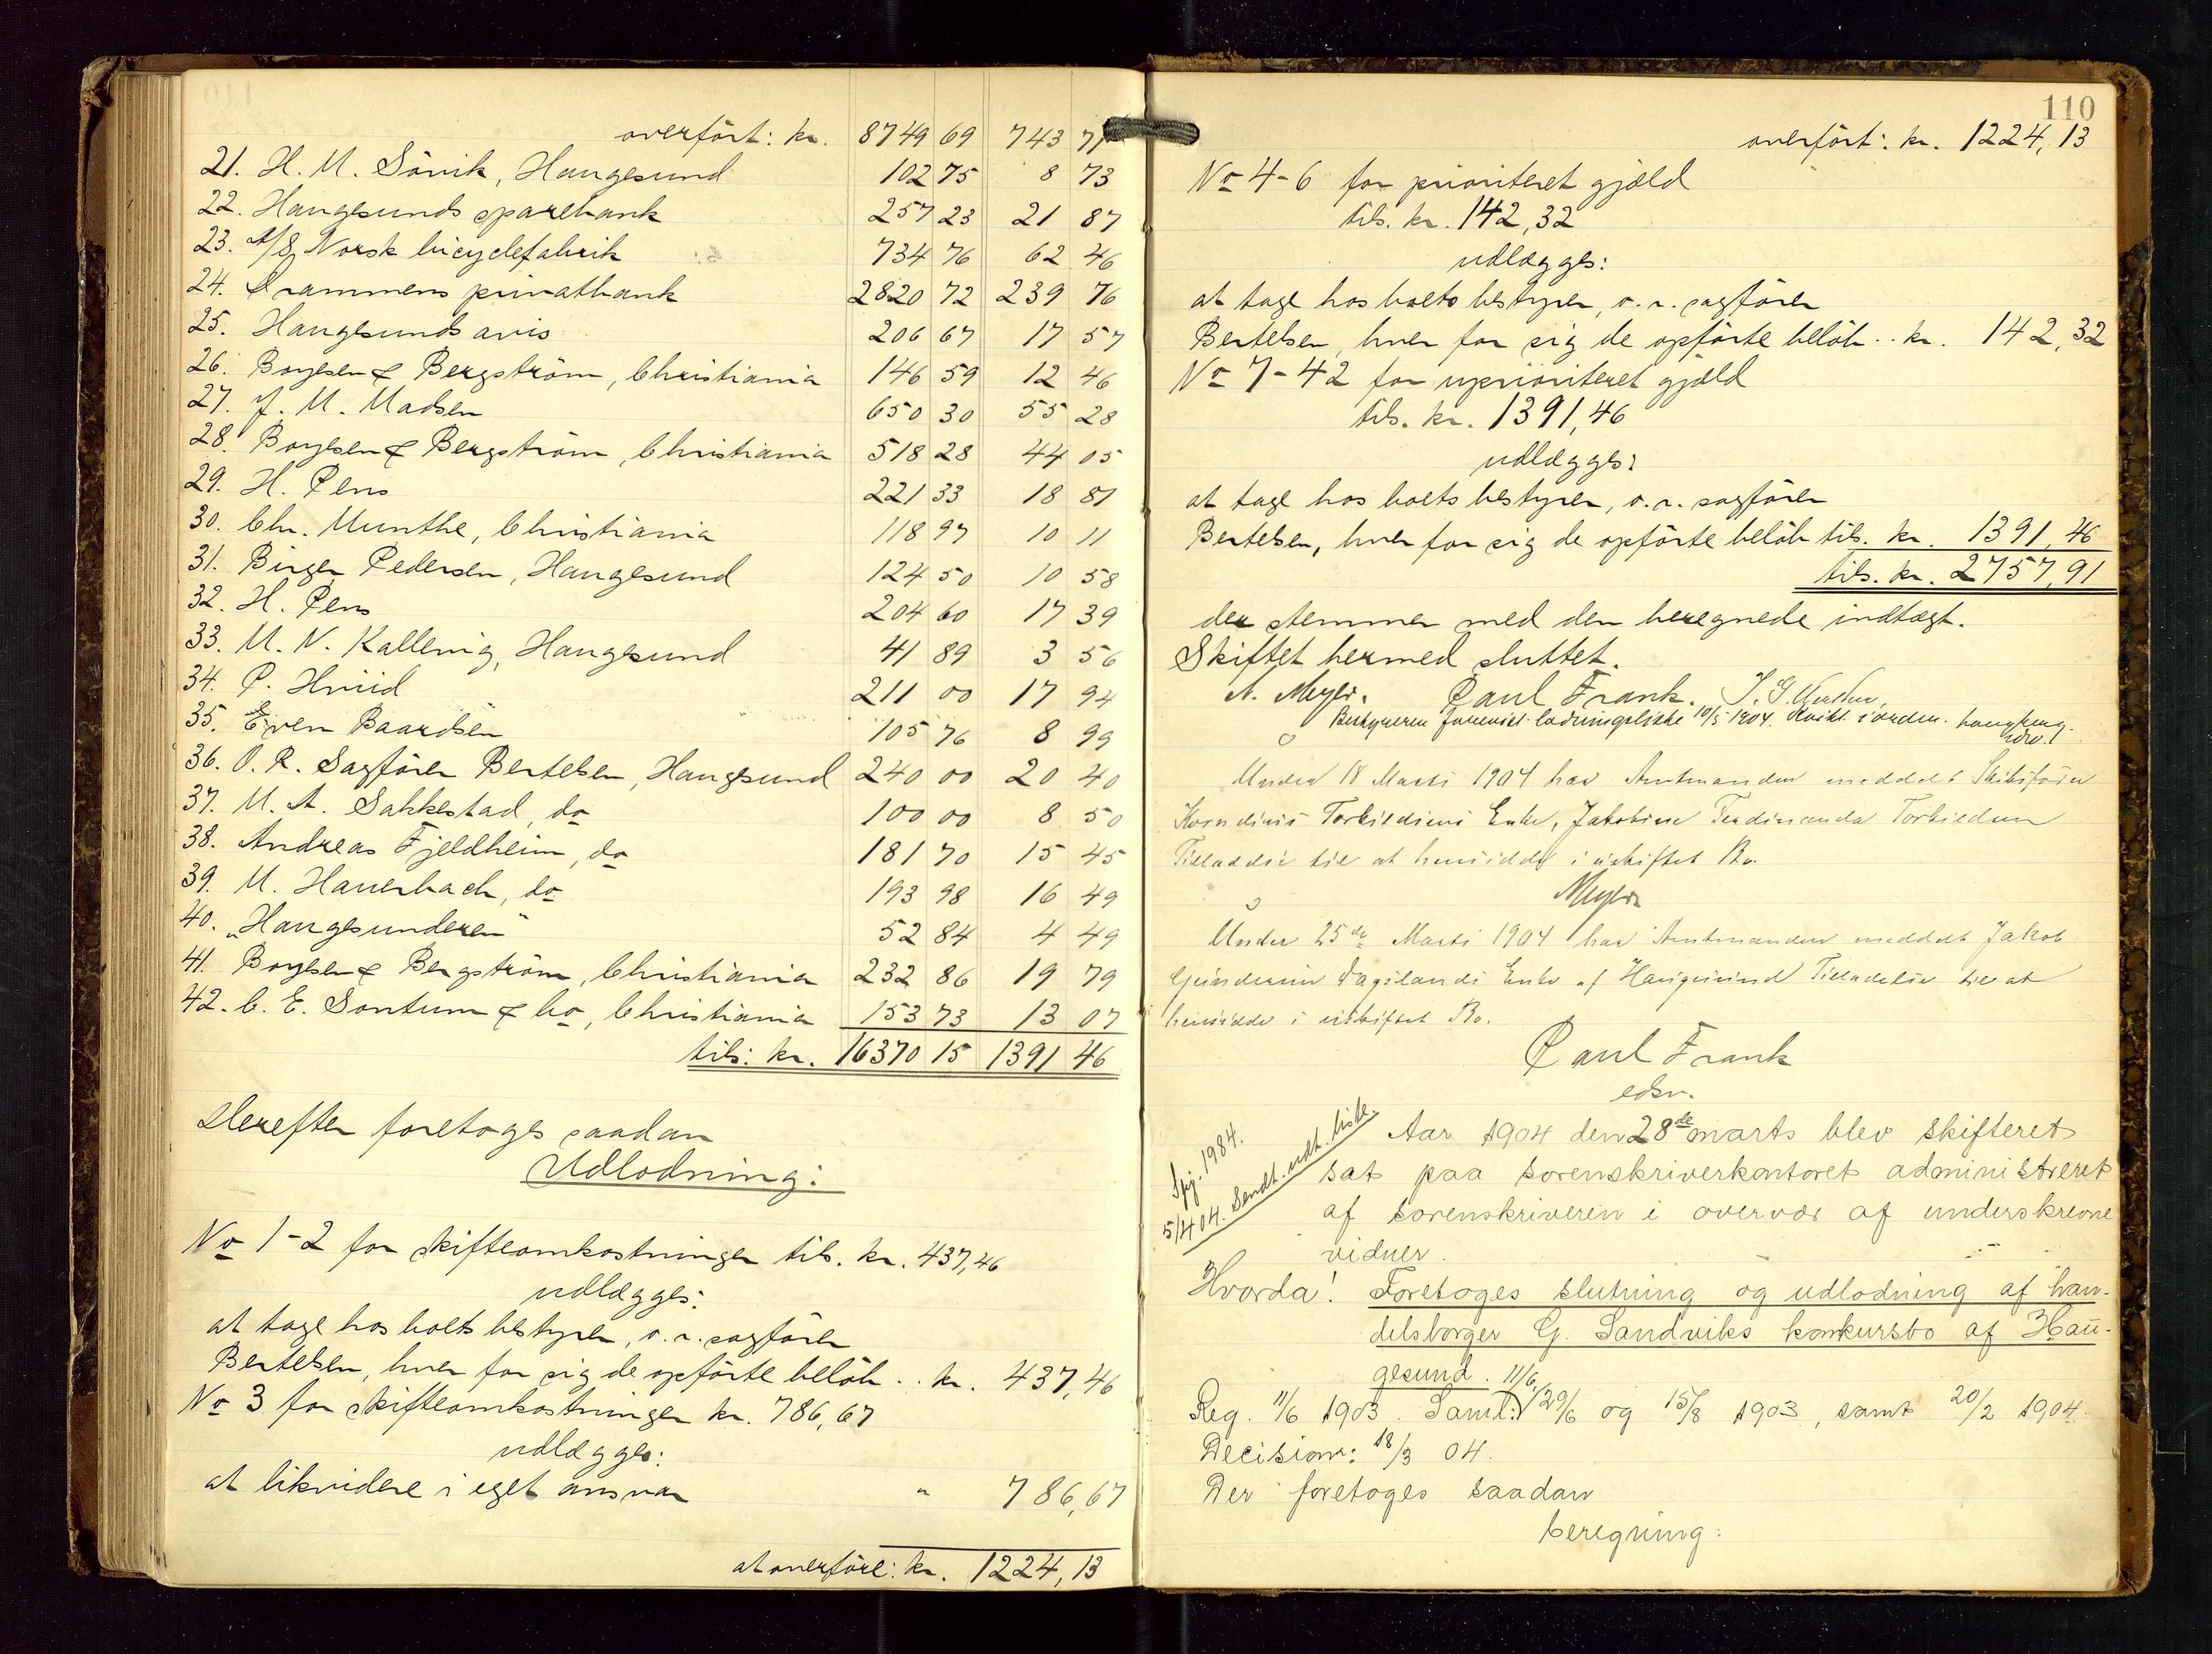 overført: kr. 8749 69 743 71
21. H. M. Sörvik, Haugesund 102 75 8 73
22. Haugesunds sparebank 257 23 21 87
23. A/S Norsk bicyclefabrik 734 76 62 46
24. Drammens privatbank 2820 72 239 76
25. Haugesunds avis 206 67 17 57
26. Boysen & Bergström, Christiania 146 59 12 46
27. J. M. Madsen 650 30 55 28
28. Boysen & Bergström, Christiania 518 28 44 05
29. H. Pens 221 33 18 81
30. Chr. Munthe, Christiania 118 97 10 11
31. Birger Pedersen, Haugesund 124 50 10 58
32. H. Pens 204 60 17 39
33. M. N. Kallevig, Haugesund 41 89 3 56
34. P. Hviid 211 00 17 94
35. Even Baardsen 105 76 8 99
36. O. R. Sagfører Bertelsen, Haugesund 240 00 20 40
37. M. A. Sakkestad, do 100 00 8 50
38. Andreas Fjeldheim, do 181 70 15 45
39. M. Hauerbach, do 193 98 16 49
40. "Haugesunderen" 52 84 4 49
41. Boysen & Bergström, Christiania 232 86 19 79
42. C. E. Sontum & Co, Christiania 153 73 13 07
tils: kr. 16370 15 1391 46
Derefter foretoges saadan
Udlodning:
No 1-2 for skifteomkostninger tils. kr. 437,46
udlægges:
at tage hos boets bestyrer, o. r. sagfører
Bertelsen, hver for sig de opførte beløb .. kr. 437,46
No 3 for skifteomkostninger kr. 786,67
udlægges:
at likvidere i eget ansvar " 786,67
at overføre: kr. 1224,13
110
overført: kr. 1224,13
No 4-6 for prioriteret gjæld
tils. kr. 142,32
udlægges:
at tage hos boets bestyrer, o. r. sagfører
Bertelsen, hver for sig de opførte beløb .. kr. 142,32
No 7-42 for uprioriteret gjæld
tils. kr. 1391,46
udlægges:
at tage hos boets bestyrer, o. r. sagfører
Bertelsen, hver for sig de opførte beløb tils. kr. 1391,46
tils. kr. 2757,91
der stemmer med den beregnede indtægt.
Skiftet hermed sluttet.
A. Meyer. Paul Frank.
Bestyreren forevist 10/5 1904.
Under 18 Marts 1904 har Amtmanden meddelt Skibsfører
Torkildsens Enke, Jakobine Ferdinanda Torkildsen
Tilladelse til at hensidde i uskiftet Bo.
Meyer
Under 25de Marts 1904 har Amtmanden meddelt Jakob
Enke af Haugesund Tilladelse til at
hensidde i uskiftet Bo.
Paul Frank
edsv.
Spj. 1984.
5/4 04. Sendt. udt. liste.
Aar 1904 den 28de marts blev skifteret
sat paa sorenskriverkontoret administreret
af sorenskriveren i overvær af underskrevne
vidner.
Hvorda! Foretoges slutning og udlodning af han-
delsborger G. Sandviks konkursbo af Hau-
gesund. 11/6,
Reg. 11/6 1903. Saml: 29/6 og 15/8 1903, samt 20/2 1904.
Decision: 18/3 04.
Der foretoges saadan
beregning: